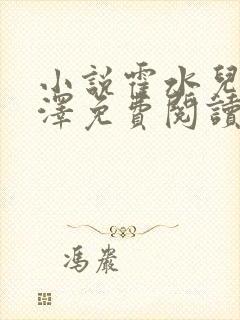 小說霍水兒
澤免費閱讀
馮嚴